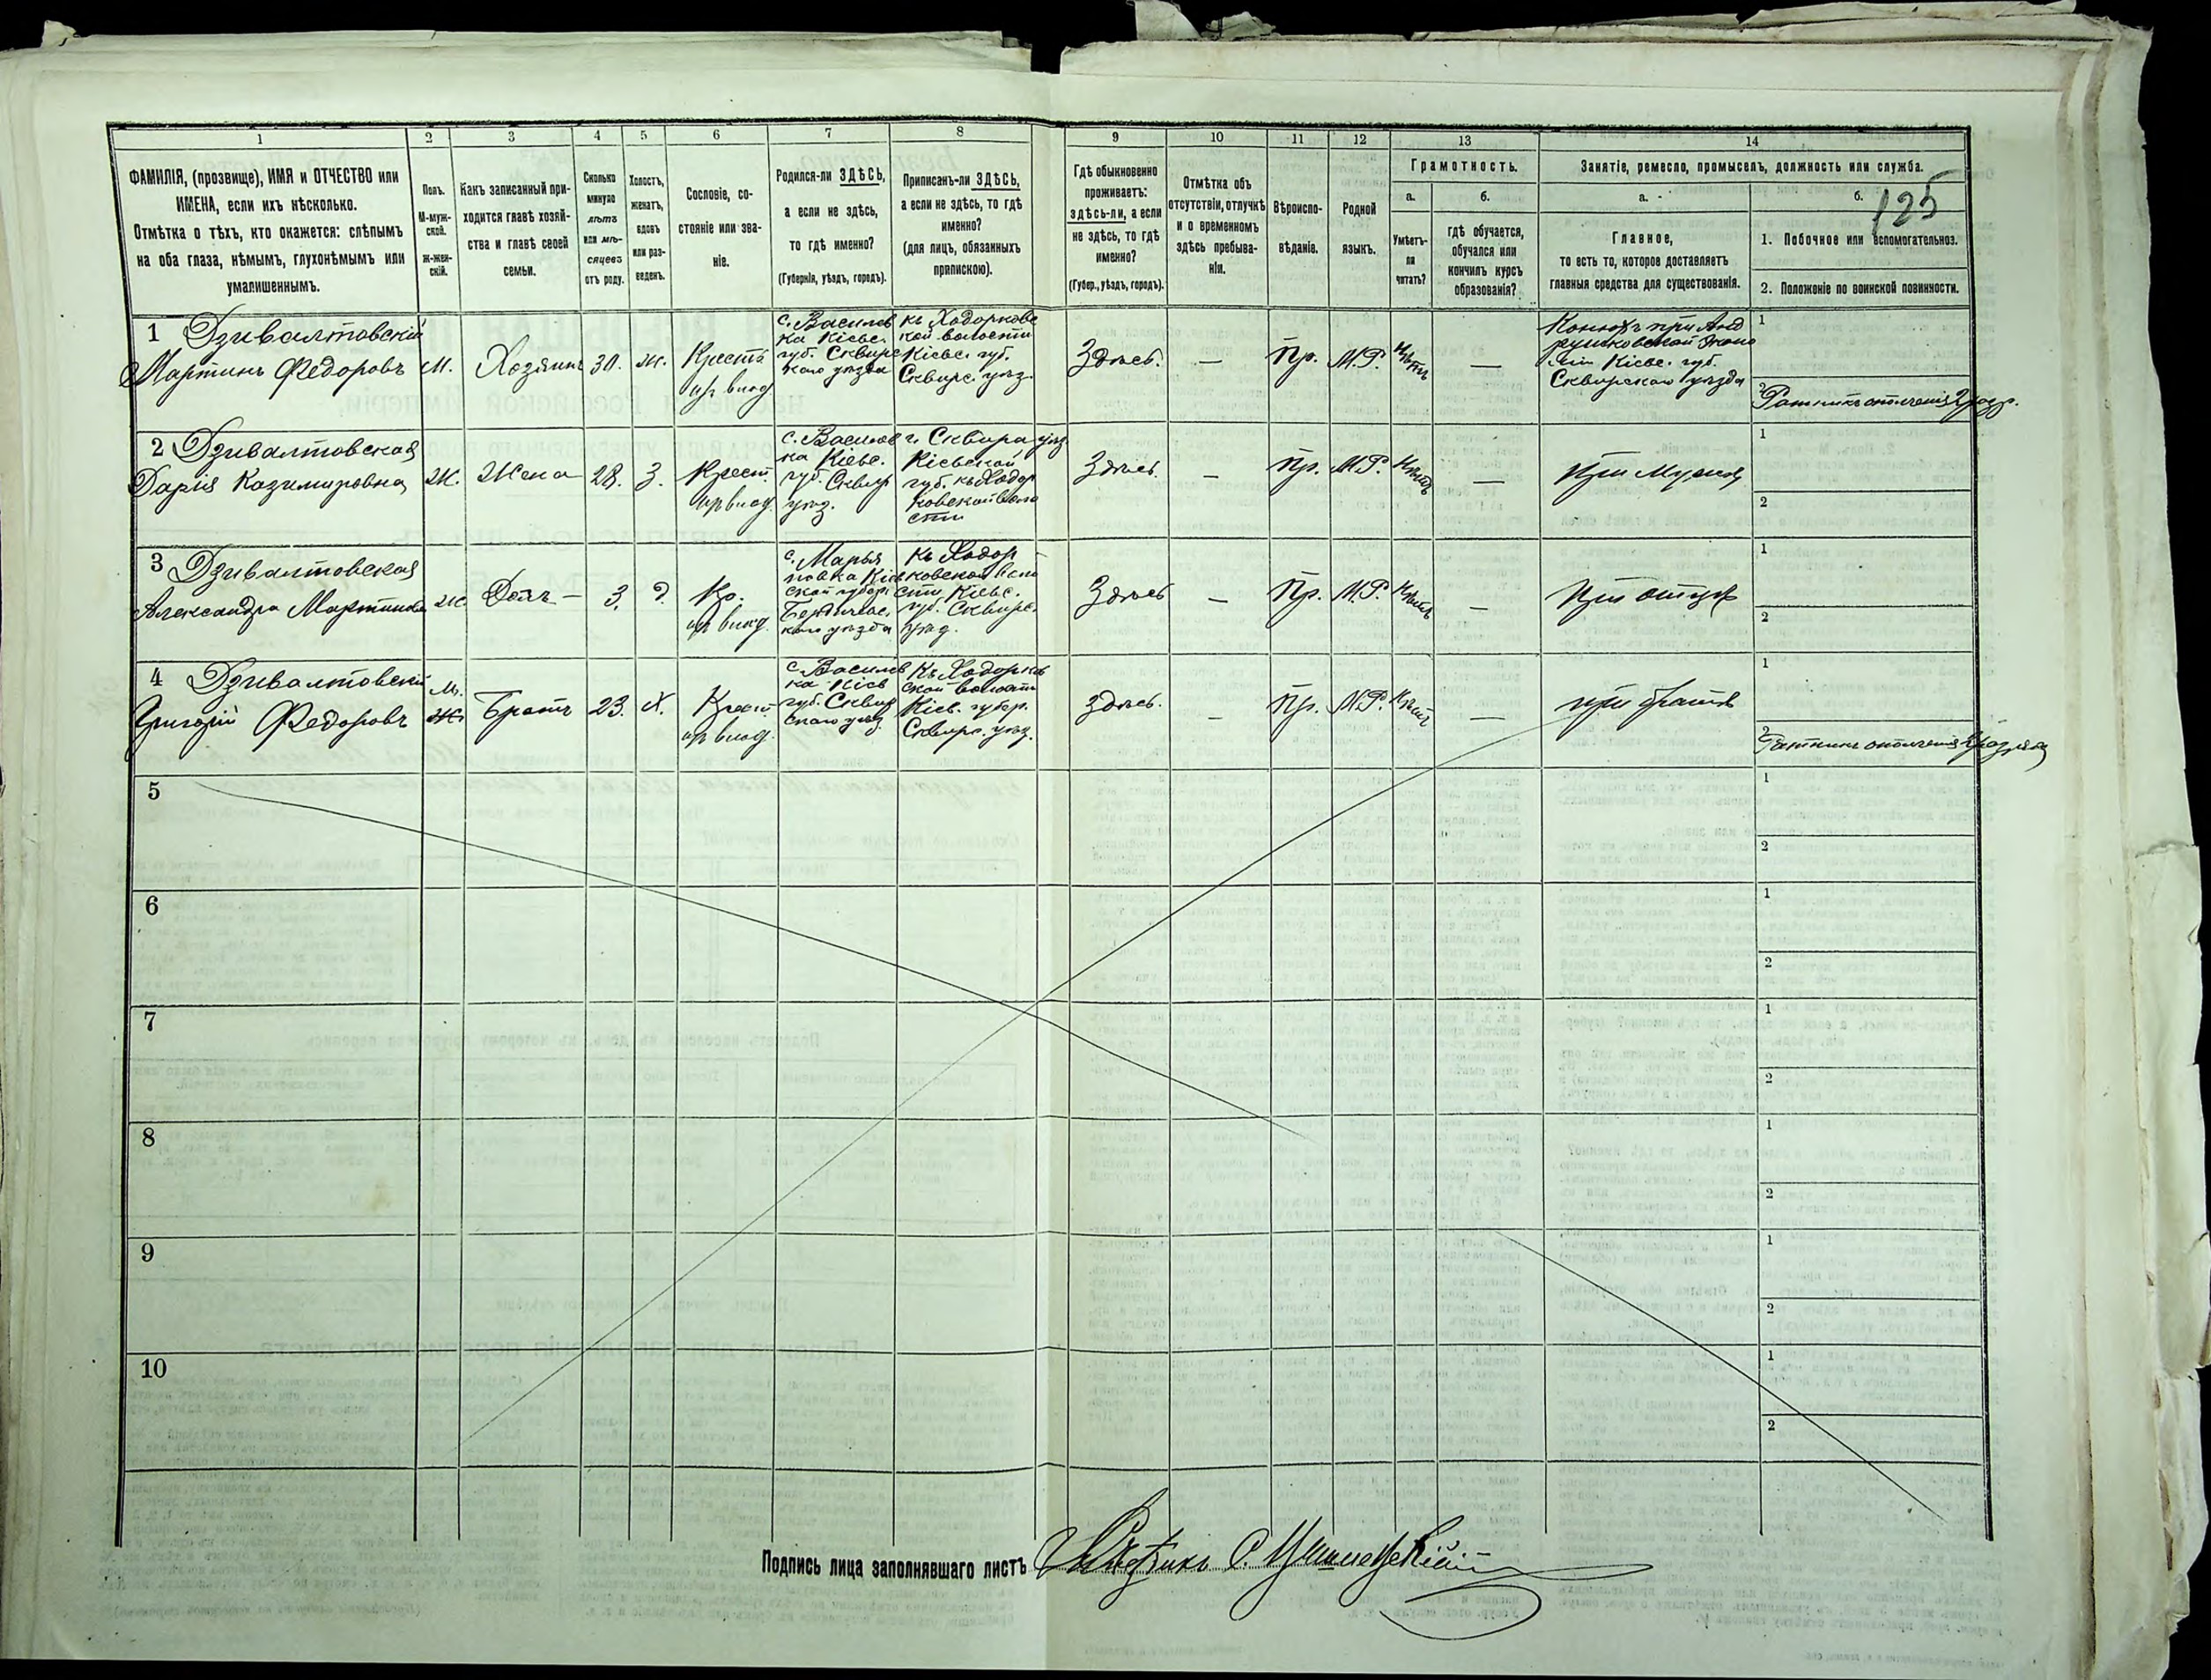 1
2
3
4
5
6
7
8
9
10
11
12
13
14
ФАМИЛІЯ, (прозвище), ИМЯ и ОТЧЕСТВО или
ИМЕНА, если ихъ нѣсколько.
Отмѣтка о тѣхъ, кто окажется: слѣпымъ
на оба глаза, нѣмымъ, глухонѣмымъ или
умалишеннымъ.
Полъ.
М-муж-
ской.
Ж-жен-
скій.
Какъ записанный при-
ходится главѣ хозяй-
ства и главѣ своей
семьи.
Сколько
минуло
лѣтъ
или мѣ-
сяцевъ
отъ роду.
Холостъ,
женатъ,
вдовъ
или раз-
веденъ.
Сословіе, со-
стояніе или зва-
ніе.
Родился-ли ЗДѢСЬ,
а если не здѣсь,
то гдѣ именно?
(Губернія, уѣздъ, городъ).
Приписанъ-ли ЗДѢСЬ,
а если не здѣсь, то гдѣ
именно?
(для лицъ, обязанныхъ
припискою).
Гдѣ обыкновенно
проживаетъ:
здѣсь-ли, а если
не здѣсь, то гдѣ
именно?
(Губер., уѣздъ, городъ).
Отмѣтка объ
отсутствіи, отлучкѣ
и о временномъ
здѣсь пребыва-
ніи.
Вѣроиспо-
вѣданіе.
Родной
языкъ.
Грамотность.
а.
Умѣетъ-
ли
читать?
б.
гдѣ обучается,
обучался или
кончилъ курсъ
образованія?
Занятіе, ремесло, промыселъ, должность или служба.
а.
Главное,
то есть то, которое доставляетъ
главныя средства для существованія.
б.
125
1. Побочное или вспомогательное.
2. Положеніе по воинской повинности.
1 Дзивалтовскій
Мартинъ Федоровъ
М.
Хозяинъ
30.
Ж.
Крестъ
с. Василев
ка Кіевс.
губ. Сквирс
каго уѣзда
къ Ходорковс
кой волости
Кіевс. губ.
Сквирс. уѣз.
Здѣсь.
—
Пр.
М.Р.
нѣтъ
—
Конюхъ при Анд
рушковской эконо
міи Кіевс. губ.
Сквирскаго уѣзда
1
2 Ратникъ ополченія 2 разр.
2 Дзивалтовская
Дарія Казимировна
Ж.
Жена
28.
З.
Крест.
с. Василев
ка Кіевс.
губ. Сквир
уѣз.
г. Сквира уѣз.
Кіевской
губ. къ Ходор
ковской воло
сти
Здѣсь
—
Пр.
М.Р.
нѣтъ
—
При мужѣ
1
2
3 Дзивалтовская
Александра Мартинова
Ж.
Дочь —
3.
Д.
Кр.
с. Марья
новка Кіев
ской губер
Бердичевс.
каго уѣзда
къ Ходор
ковской воло
сти Кіевс.
губ. Сквирс.
уѣз.
Здѣсь
—
Пр.
М.Р.
нѣтъ
—
При отцѣ
1
2
4 Дзивалтовскій
Григорій Федоровъ
М.
Ж.
Братъ
23.
Х.
Крест.
с. Василев
ка Кіев
губ. Сквир
скаго уѣз.
Къ Ходорков
ской волости
Кіев. губер.
Сквирс. уѣз.
Здѣсь.
—
Пр.
М.Р.
нѣтъ
—
при братѣ
1
2 Ратникъ ополченія 2 разряда
5
1
2
6
1
2
7
1
2
8
1
2
9
1
2
10
1
2
Подпись лица заполнявшаго листъ